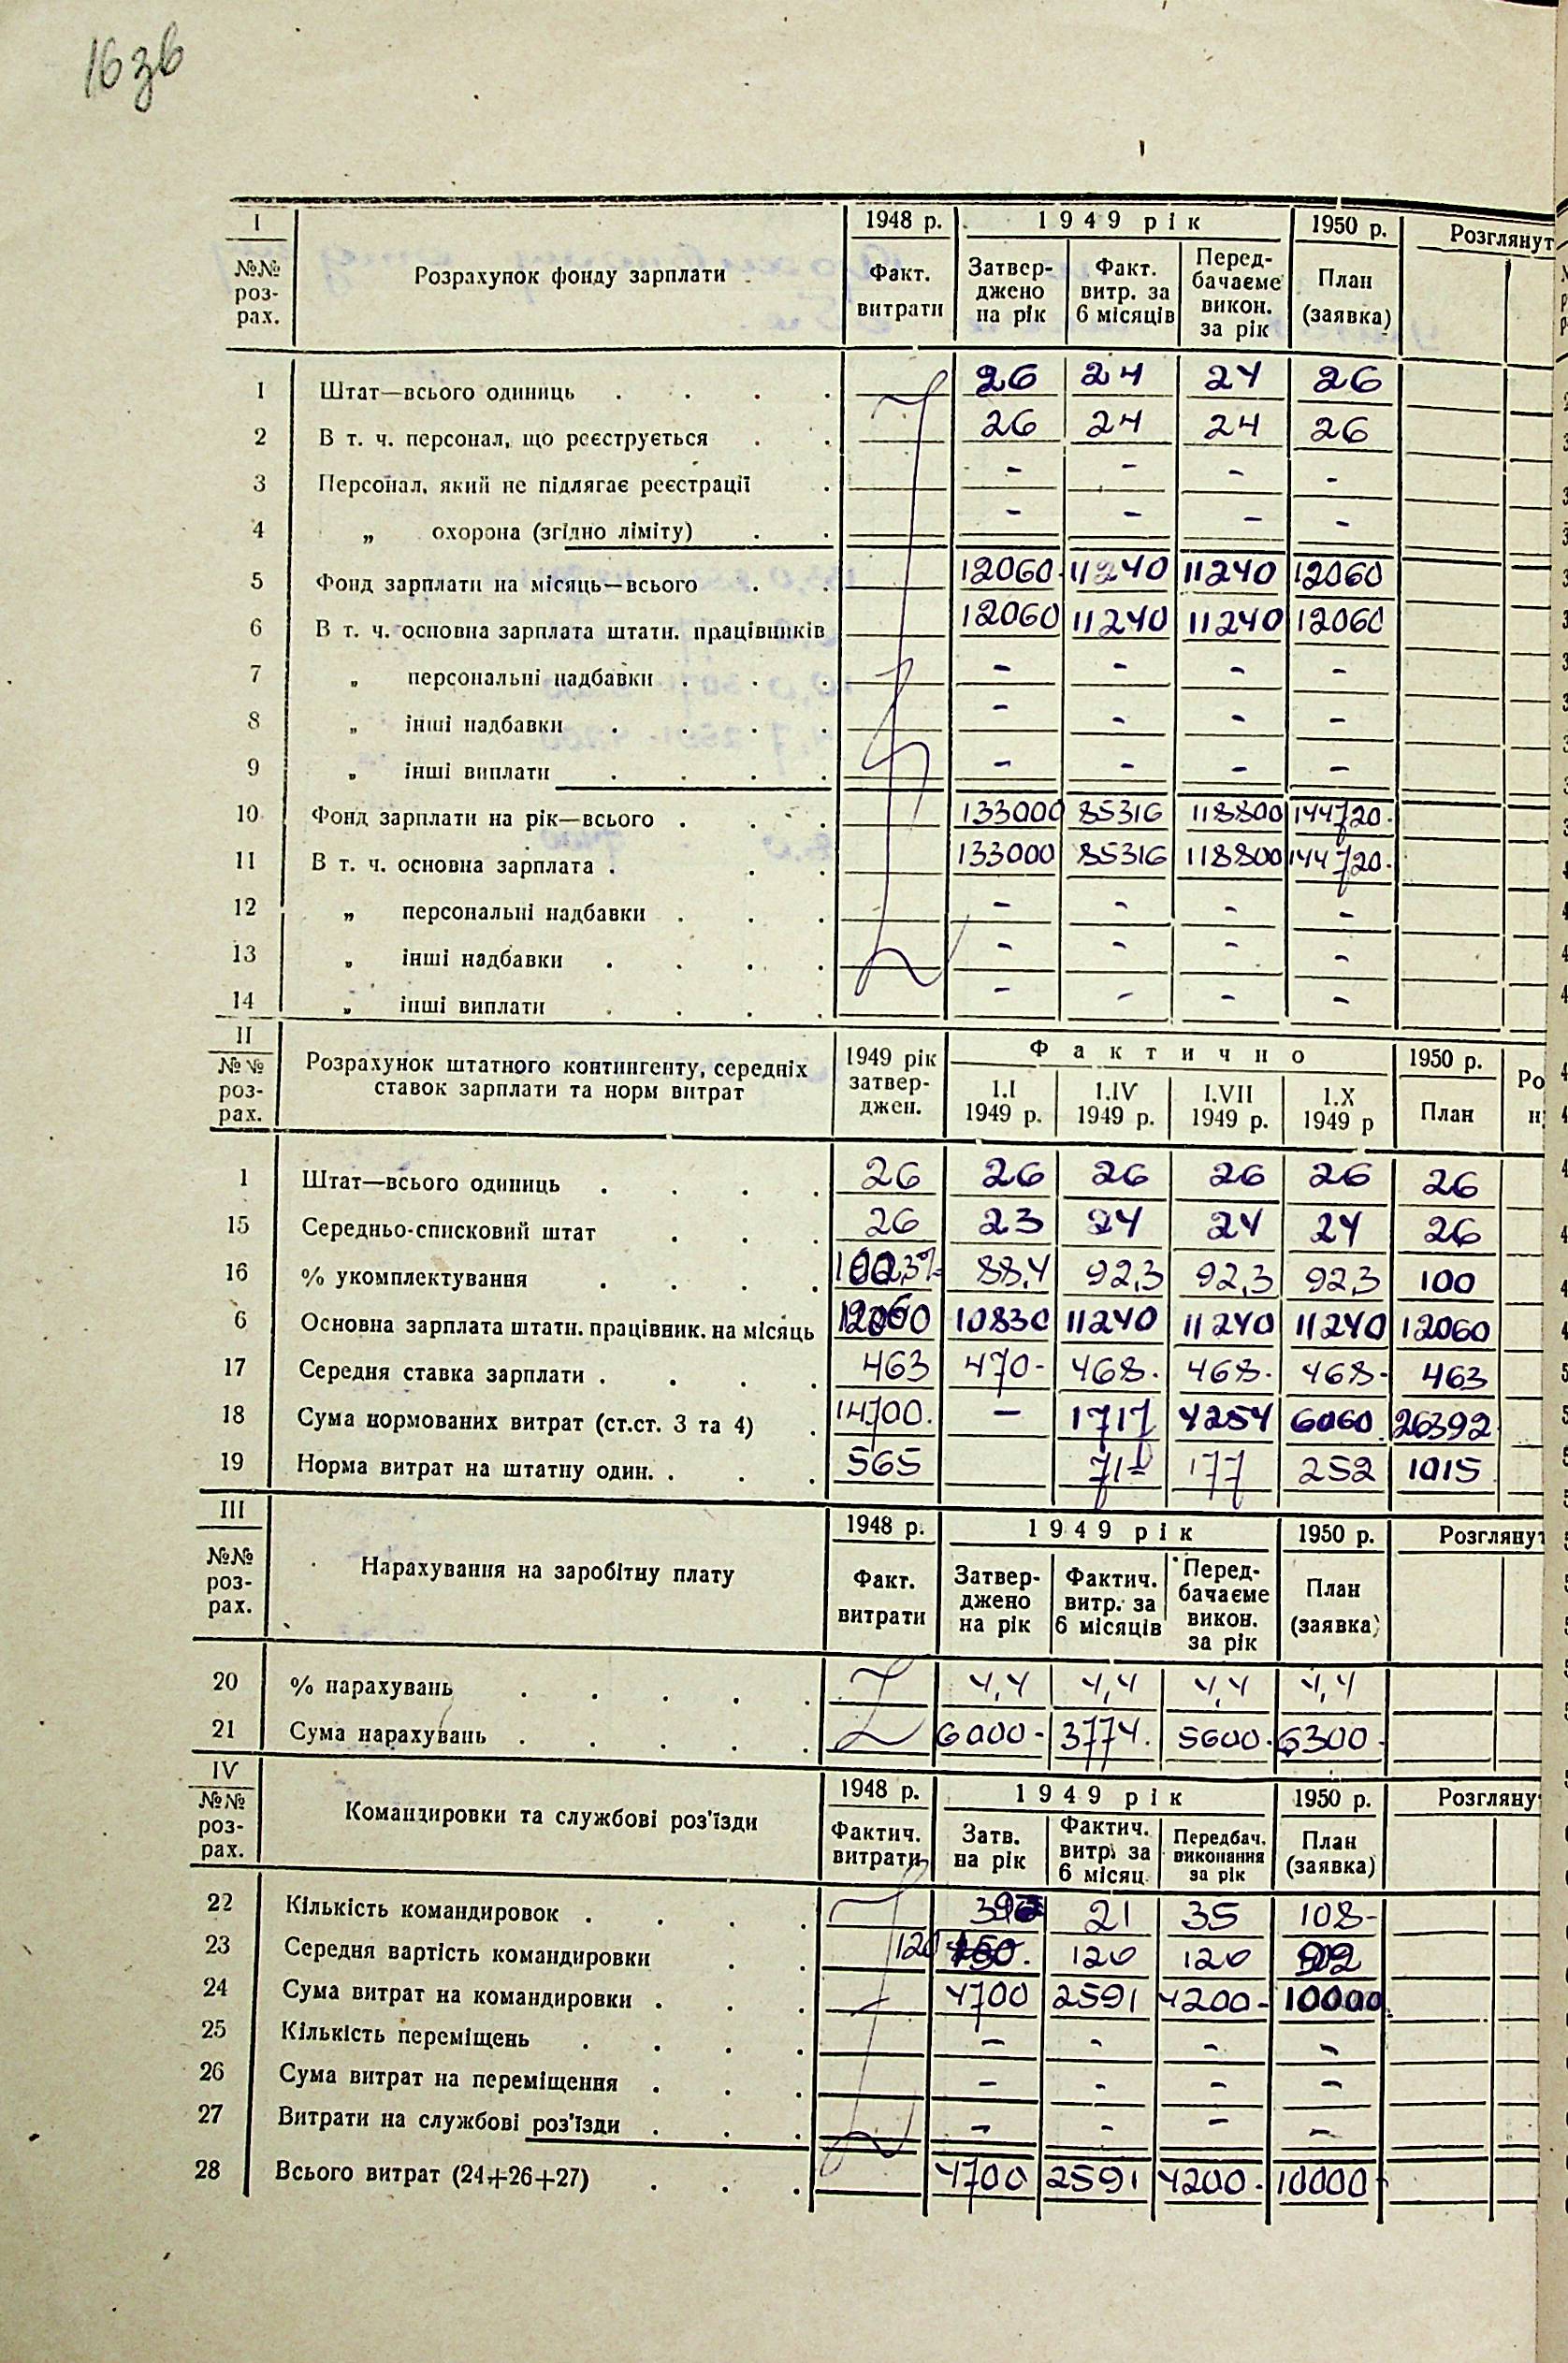 16зв
I 1948 р. 1949 рік 1950 р. Розглянут
№№ роз- рах. Розрахунок фонду зарплати Факт. витрати Затвер- джено на рік Факт. витр. за 6 місяців Перед- бачаєме викон. за рік План (заявка)
1 Штат—всього одиниць . . . . 26 24 24 26
2 В т. ч. персонал, що реєструється . . 26 24 24 26
3 Персонал, який не підлягає реєстрації . - - - -
4 „ охорона (згідно ліміту) . . - - - -
5 Фонд зарплати на місяць—всього . . 12060. 11240 11240 12060
6 В т. ч. основна зарплата штатн. працівників 12060 11240 11240 12060
7 „ персональні надбавки . . . - - - -
8 „ інші надбавки . . . . - - - -
9 „ інші виплати . . . . - - - -
10 Фонд зарплати на рік—всього . . . 133000 85316 118800 144720.
11 В т. ч. основна зарплата . . . 133000 85316 118800 144720.
12 „ персональні надбавки . . . - - - -
13 „ інші надбавки . . . . - - - -
14 „ інші виплати . . . . - - - -
II 1949 рік Фактично 1950 р.
№№ роз- рах. Розрахунок штатного контингенту, середніх ставок зарплати та норм витрат затвер- джен. 1.I 1949 р. 1.IV 1949 р. I.VII 1949 р. 1.X 1949 р План Ро
1 Штат—всього одиниць . . . . 26 26 26 26 26 26
15 Середньо-списковий штат . . . 26 23 24 24 24 26
16 % укомплектування . . . . 88,4 92,3 92,3 92,3 100
6 Основна зарплата штатн. працівник. на місяць 12060 10830 11240 11240 11240 12060
17 Середня ставка зарплати . . . . 463 470- 468. 468. 468- 463
18 Сума нормованих витрат (ст.ст. 3 та 4) . 14700. — 1717 4254 6060. 26392
19 Норма витрат на штатну один. . . . 565 177 252 1015
III 1948 р. 1949 рік 1950 р. Розглянут
№№ роз- рах. Нарахування на заробітну плату Факт. витрати Затвер- джено на рік Фактич. витр. за 6 місяців Перед- бачаєме викон. за рік План (заявка)
20 % нарахувань . . . . . 4,4 4,4 4,4 4,4
21 Сума нарахувань . . . . . 6000- 3774. 5600. 6300-
IV 1948 р. 1949 рік 1950 р. Розгляну
№№ роз- рах. Командировки та службові роз'їзди Фактич. витрати Затв. на рік Фактич. витр. за 6 місяц. Передбач. виконання за рік План (заявка)
22 Кількість командировок . . . . 21 35 108-
23 Середня вартість командировки . . 120 150. 120 120
24 Сума витрат на командировки . . . 4700 2591 4200- 10000.
25 Кількість переміщень . . . . - - - -
26 Сума витрат на переміщення . . . - - - -
27 Витрати на службові роз'їзди . . . - - - -
28 Всього витрат (24+26+27) . . . 4700 2591 4200- 10000-